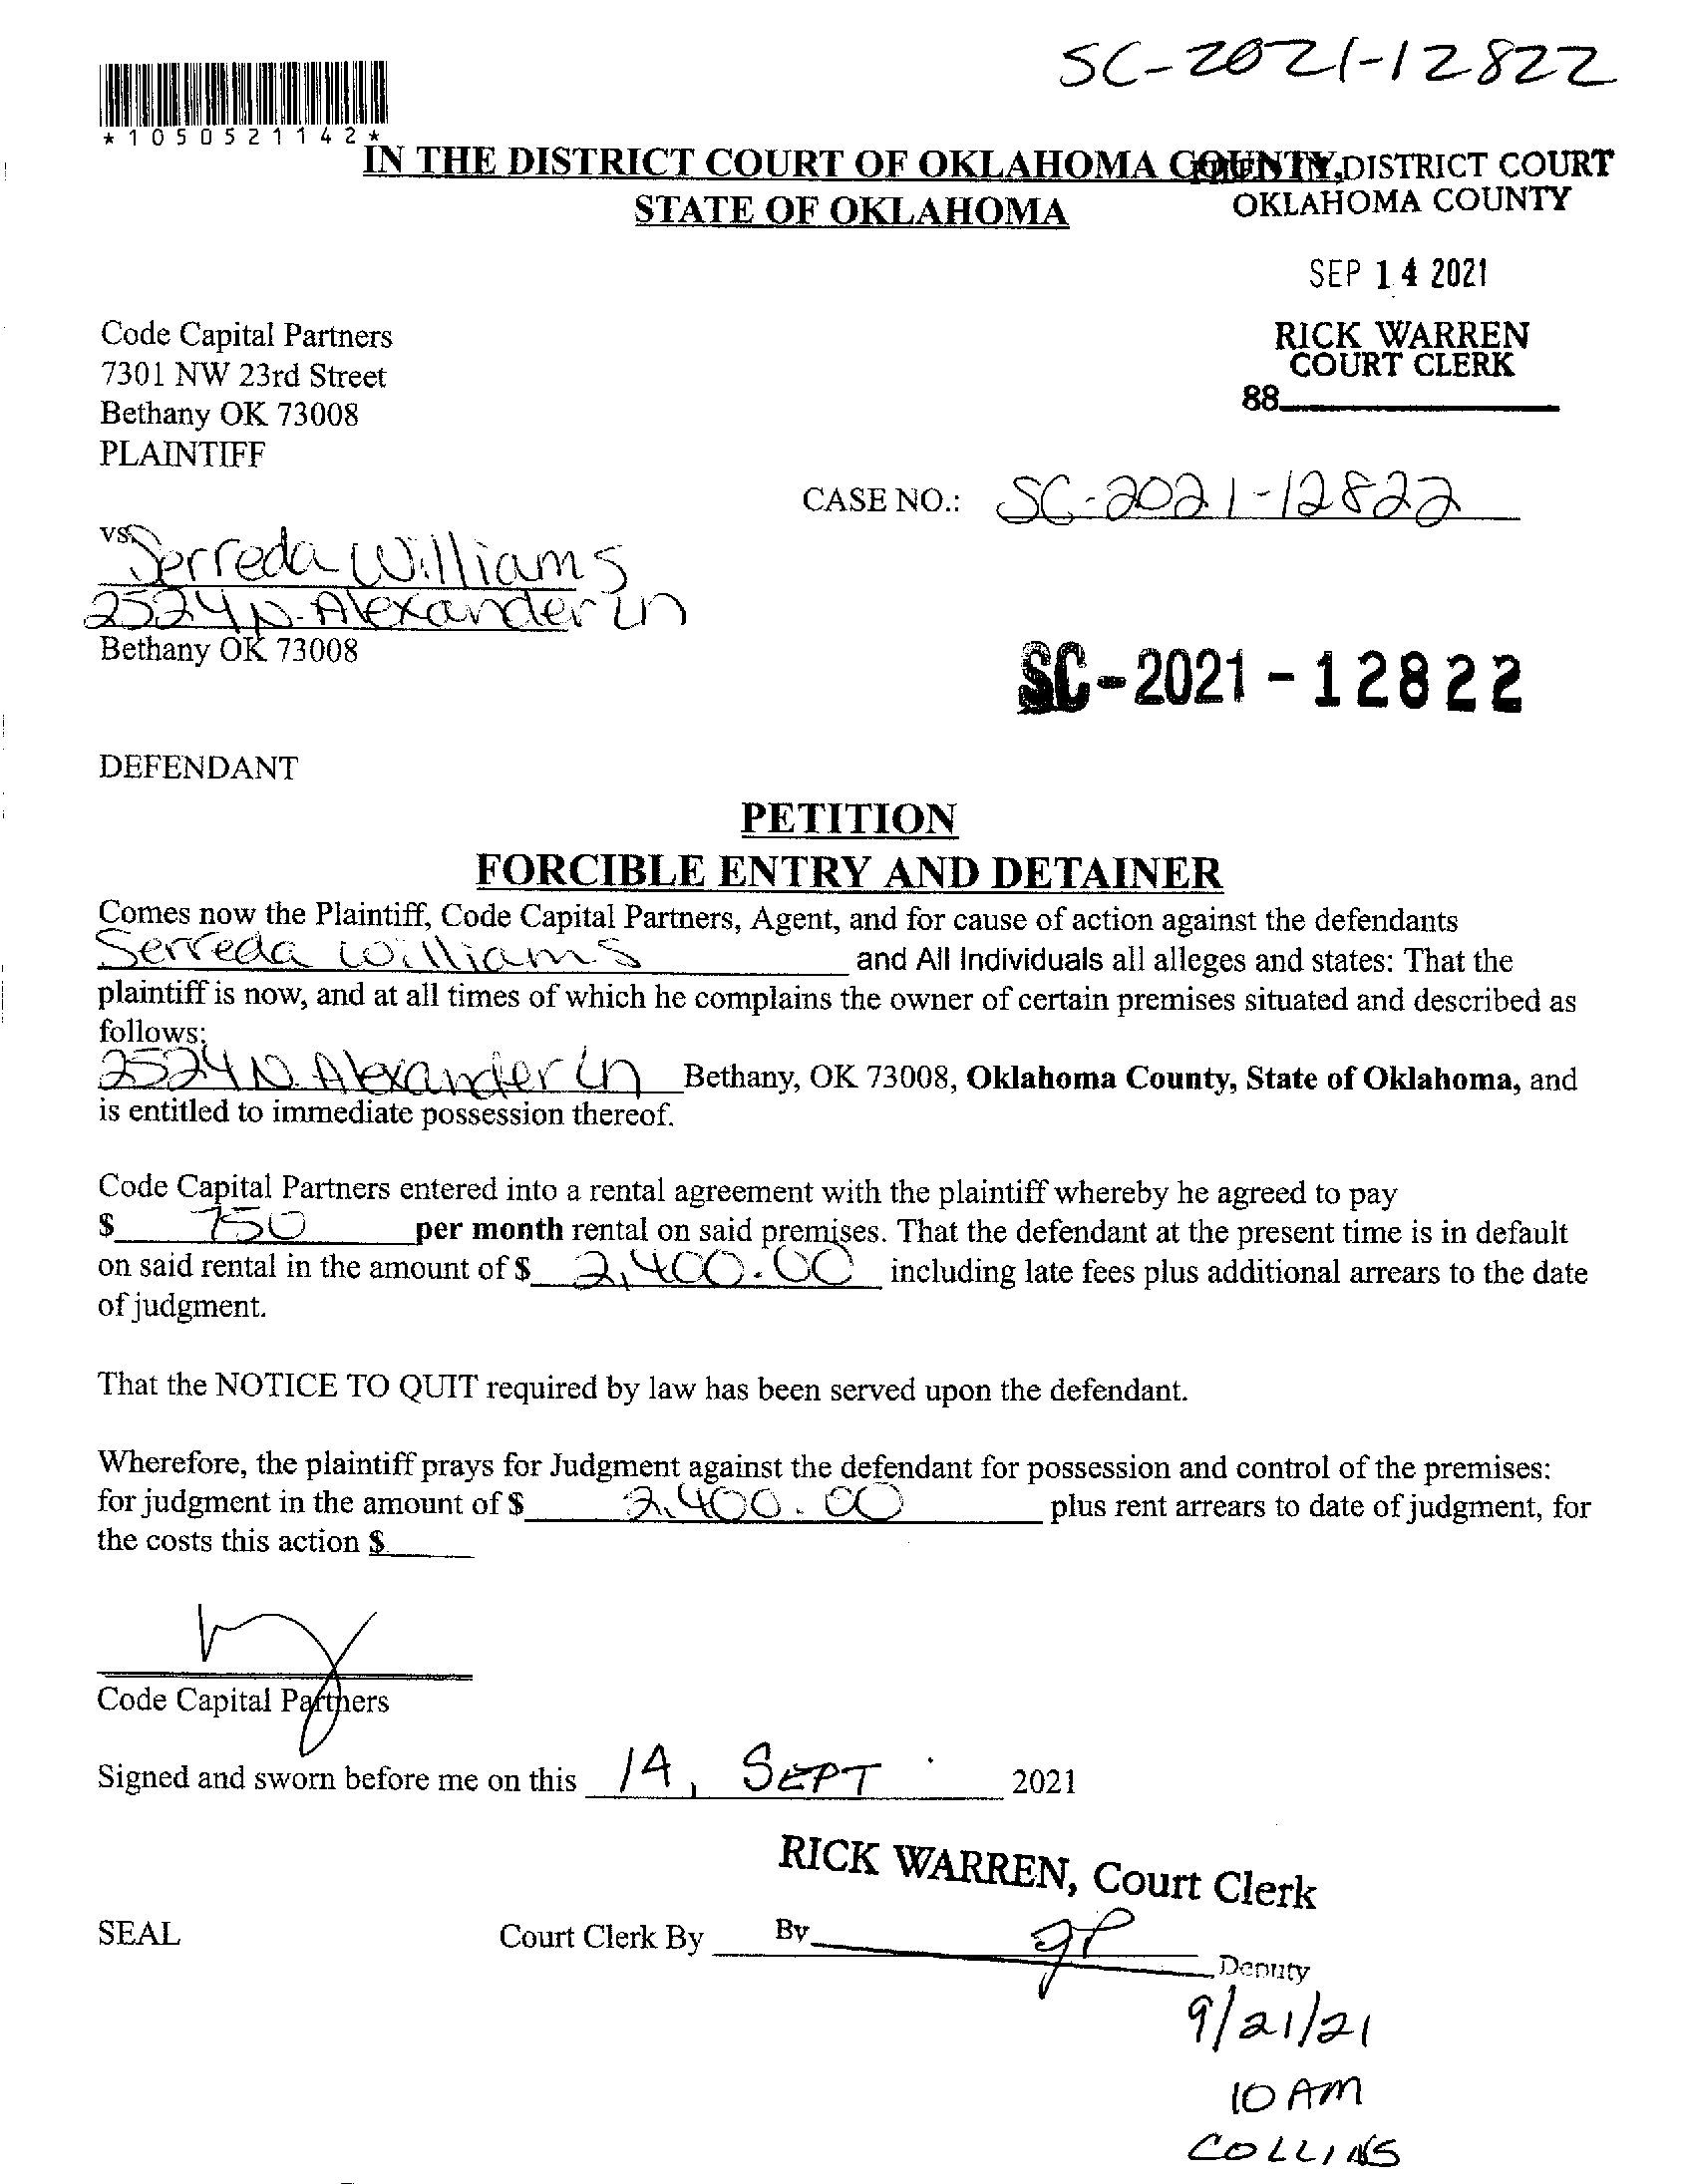 SC-2021-12822
*1050521142*
IN THE DISTRICT COURT OF OKLAHOMA COUNTY, DISTRICT COURT
STATE OF OKLAHOMA OKLAHOMA COUNTY
SEP 14 2021
Code Capital Partners RICK WARREN
7301 NW 23rd Street COURT CLERK
Bethany OK 73008 88
PLAINTIFF
CASE NO.: SC-2021-12822
vs.
Serreda Williams
2524 N. Alexander Ln
Bethany OK 73008
SC-2021-12822
DEFENDANT
PETITION
FORCIBLE ENTRY AND DETAINER
Comes now the Plaintiff, Code Capital Partners, Agent, and for cause of action against the defendants
Serreda Williams and All Individuals all alleges and states: That the
plaintiff is now, and at all times of which he complains the owner of certain premises situated and described as
follows:
2524 N. Alexander Ln Bethany, OK 73008, Oklahoma County, State of Oklahoma, and
is entitled to immediate possession thereof.
Code Capital Partners entered into a rental agreement with the plaintiff whereby he agreed to pay
$ 750 per month rental on said premises. That the defendant at the present time is in default
on said rental in the amount of $ 2,400.00 including late fees plus additional arrears to the date
of judgment.
That the NOTICE TO QUIT required by law has been served upon the defendant.
Wherefore, the plaintiff prays for Judgment against the defendant for possession and control of the premises:
for judgment in the amount of $ 2,400.00 plus rent arrears to date of judgment, for
the costs this action $
Code Capital Partners
Signed and sworn before me on this 14, SEPT 2021
RICK WARREN, Court Clerk
SEAL Court Clerk By By Deputy
9/21/21
10 AM
COLLINS